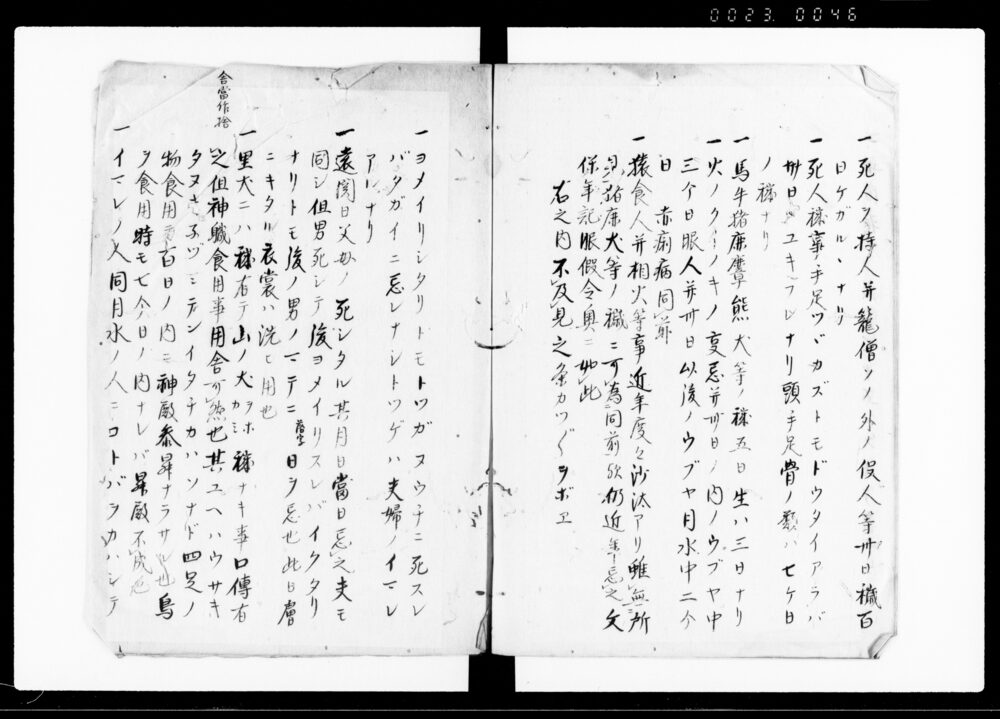 0023. 0046
一 死人ヲ持人并籠僧ソノ外ノ役人等卅日穢百
日ケガルヽナリ
一 死人穢事手足ツヾカズトモドウタイアラバ
卅日ユキフレナリ頭手足骨ノ類ハ七ケ日
ノ穢ナリ
一 馬牛猪鹿麞熊犬等ノ穢五日生ハ三日ナリ
一 火ノクイノキノ変忌并卅日ノ内ノウブヤ中
三个日眼人并卅日以後ノウブヤ月水中二个
日 赤痢病同前
一 猿食人并相火等事近年度々沙汰アリ雖無所
見猪鹿犬等ノ穢ニ可為同前歟仍近年忌之文
保年記服假令奥ニ如此
右之内不及見之条カツ〴〵ヲボヱ
一 ヨメイリシタリトモモトツガヌウチニ死スレ
バタガイニ忌レナシトツゲハ夫婦ノイマレ
アルナリ
一 遠聞日父母ノ死シタル其月日當日忌之夫モ
同シ但男死シテ後ヨメイリスレバイクタリ
ナリトモ後ノ男ノマデニ日ヲ忌也此日
ニキタル衣裳ハ洗ヒ用也
一 里犬ニハ穢有テ山ノ犬ヲホカミ穢ナキ事口傳有
之但神職食用事用舎可然也其ユヘハウサキ
タヌキ テンイタチカハソナド四足ノ
物食用 百日ノ内ニ神殿参昇ナラサル也鳥
ヲ食用時モ七个日ノ内ナレバ昇殿不成也
一 イマレノ人同月水ノ人ニコトバヲカハシテ
舎當作捨